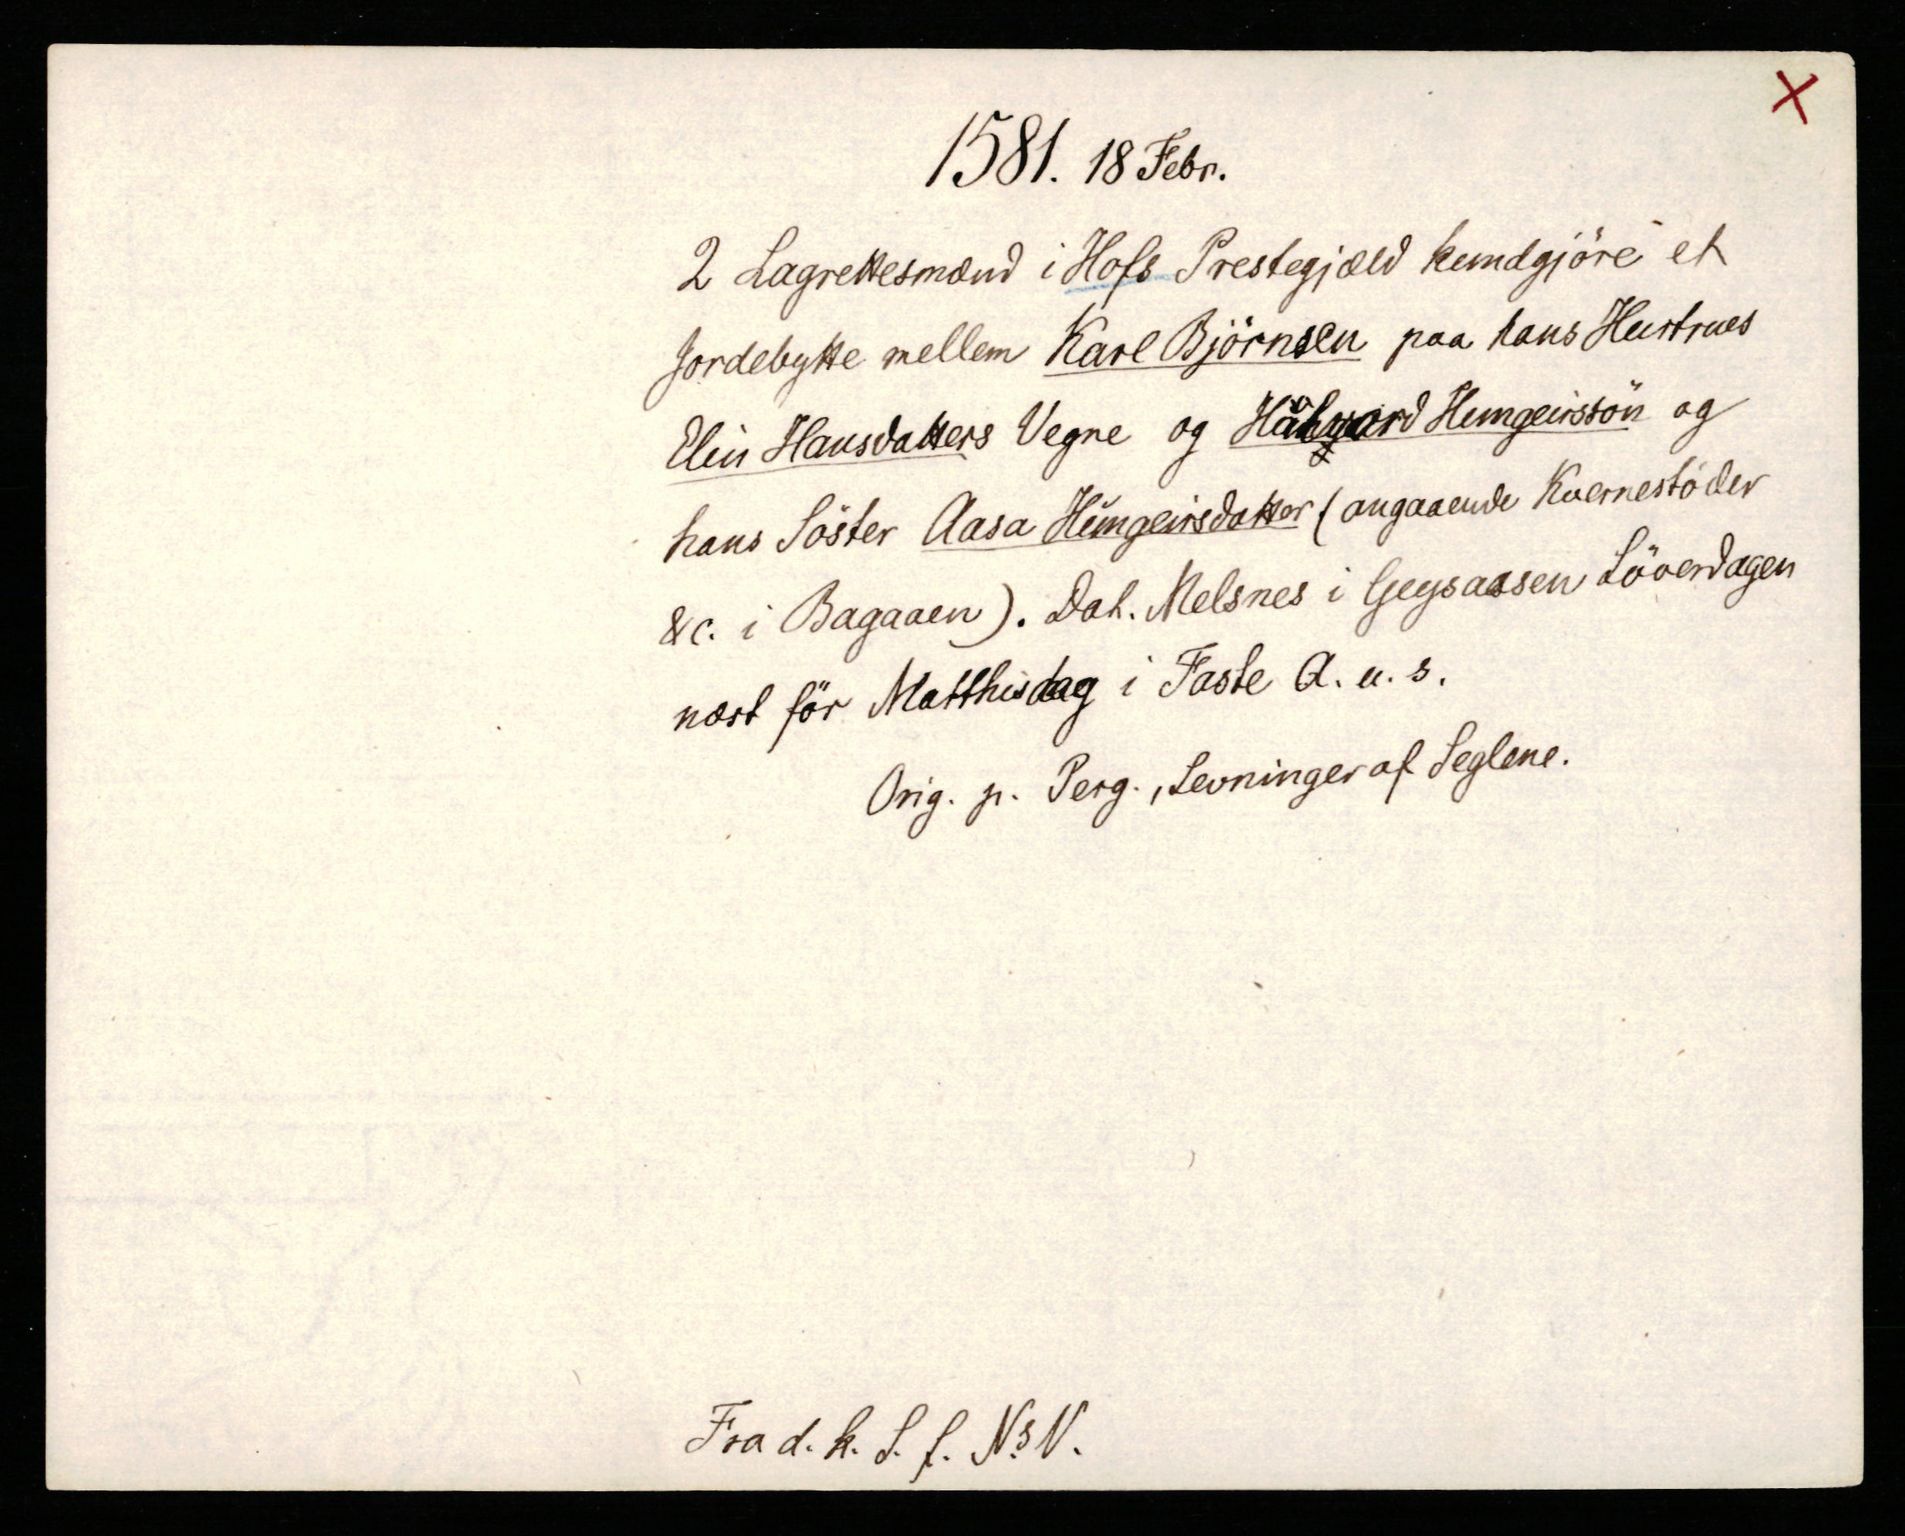 X
1581. 18 Febr.
2 Lagrettesmænd i Hofs Prestegjæld kundgjöre et
Jordebytte mellem Karl Björnsen paa hans Hustrues
Elin Hansdatters Vegne og Hemgeirssön og
hans Söster Aasa Hemgeirsdatter (angaaende Kvernestöder
&c. i Bagaaen). Dat. Melsnes i Geysaasen Löverdagen
næst för Matthisdag i Faste A. u. s.
Orig. p. Perg., Levninger af Seglene.
Fra d. k. S. f. N.s V.